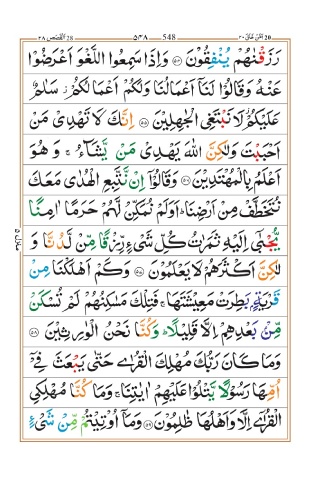 القصص ٢٨ 28 ٥٤٨ 548 امن خلق ٢٠ 20
رَزَقْنٰهُمْ يُنْفِقُوْنَ ﴿٥٤﴾ وَاِذَا سَمِعُوا اللَّغْوَ اَعْرَضُوْا
عَنْهُ وَقَالُوْا لَنَآ اَعْمَالُنَا وَلَكُمْ اَعْمَالُكُمْ ۫ سَلٰمٌ
عَلَيْكُمْ ۫ لَا نَبْتَغِى الْجٰهِلِيْنَ ﴿٥٥﴾ اِنَّكَ لَا تَهْدِىْ مَنْ
اَحْبَبْتَ وَلٰكِنَّ اللّٰهَ يَهْدِىْ مَنْ يَّشَآءُ ۚ وَ هُوَ
اَعْلَمُ بِالْمُهْتَدِيْنَ ﴿٥٦﴾ وَقَالُوْٓا اِنْ نَّتَّبِعِ الْهُدٰى مَعَكَ
نُتَخَطَّفْ مِنْ اَرْضِنَا ؕ اَوَلَمْ نُمَكِّنْ لَّهُمْ حَرَمًا اٰمِنًا
يُّجْبٰٓى اِلَيْهِ ثَمَرٰتُ كُلِّ شَىْءٍ رِّزْقًا مِّنْ لَّدُنَّا وَ
لٰكِنَّ اَكْثَرَهُمْ لَا يَعْلَمُوْنَ ﴿٥٧﴾ وَكَمْ اَهْلَكْنَا مِنْ
قَرْيَةٍۢ بَطِرَتْ مَعِيْشَتَهَا ۚ فَتِلْكَ مَسٰكِنُهُمْ لَمْ تُسْكَنْ
مِّنْۢ بَعْدِهِمْ اِلَّا قَلِيْلًا ؕ وَكُنَّا نَحْنُ الْوٰرِثِيْنَ ﴿٥٨﴾
وَمَا كَانَ رَبُّكَ مُهْلِكَ الْقُرٰى حَتّٰى يَبْعَثَ فِىْٓ
اُمِّهَا رَسُوْلًا يَّتْلُوْا عَلَيْهِمْ اٰيٰتِنَا ۚ وَمَا كُنَّا مُهْلِكِى
الْقُرٰٓى اِلَّا وَاَهْلُهَا ظٰلِمُوْنَ ﴿٥٩﴾ وَمَآ اُوْتِيْتُمْ مِّنْ شَىْءٍ
منزل ٥